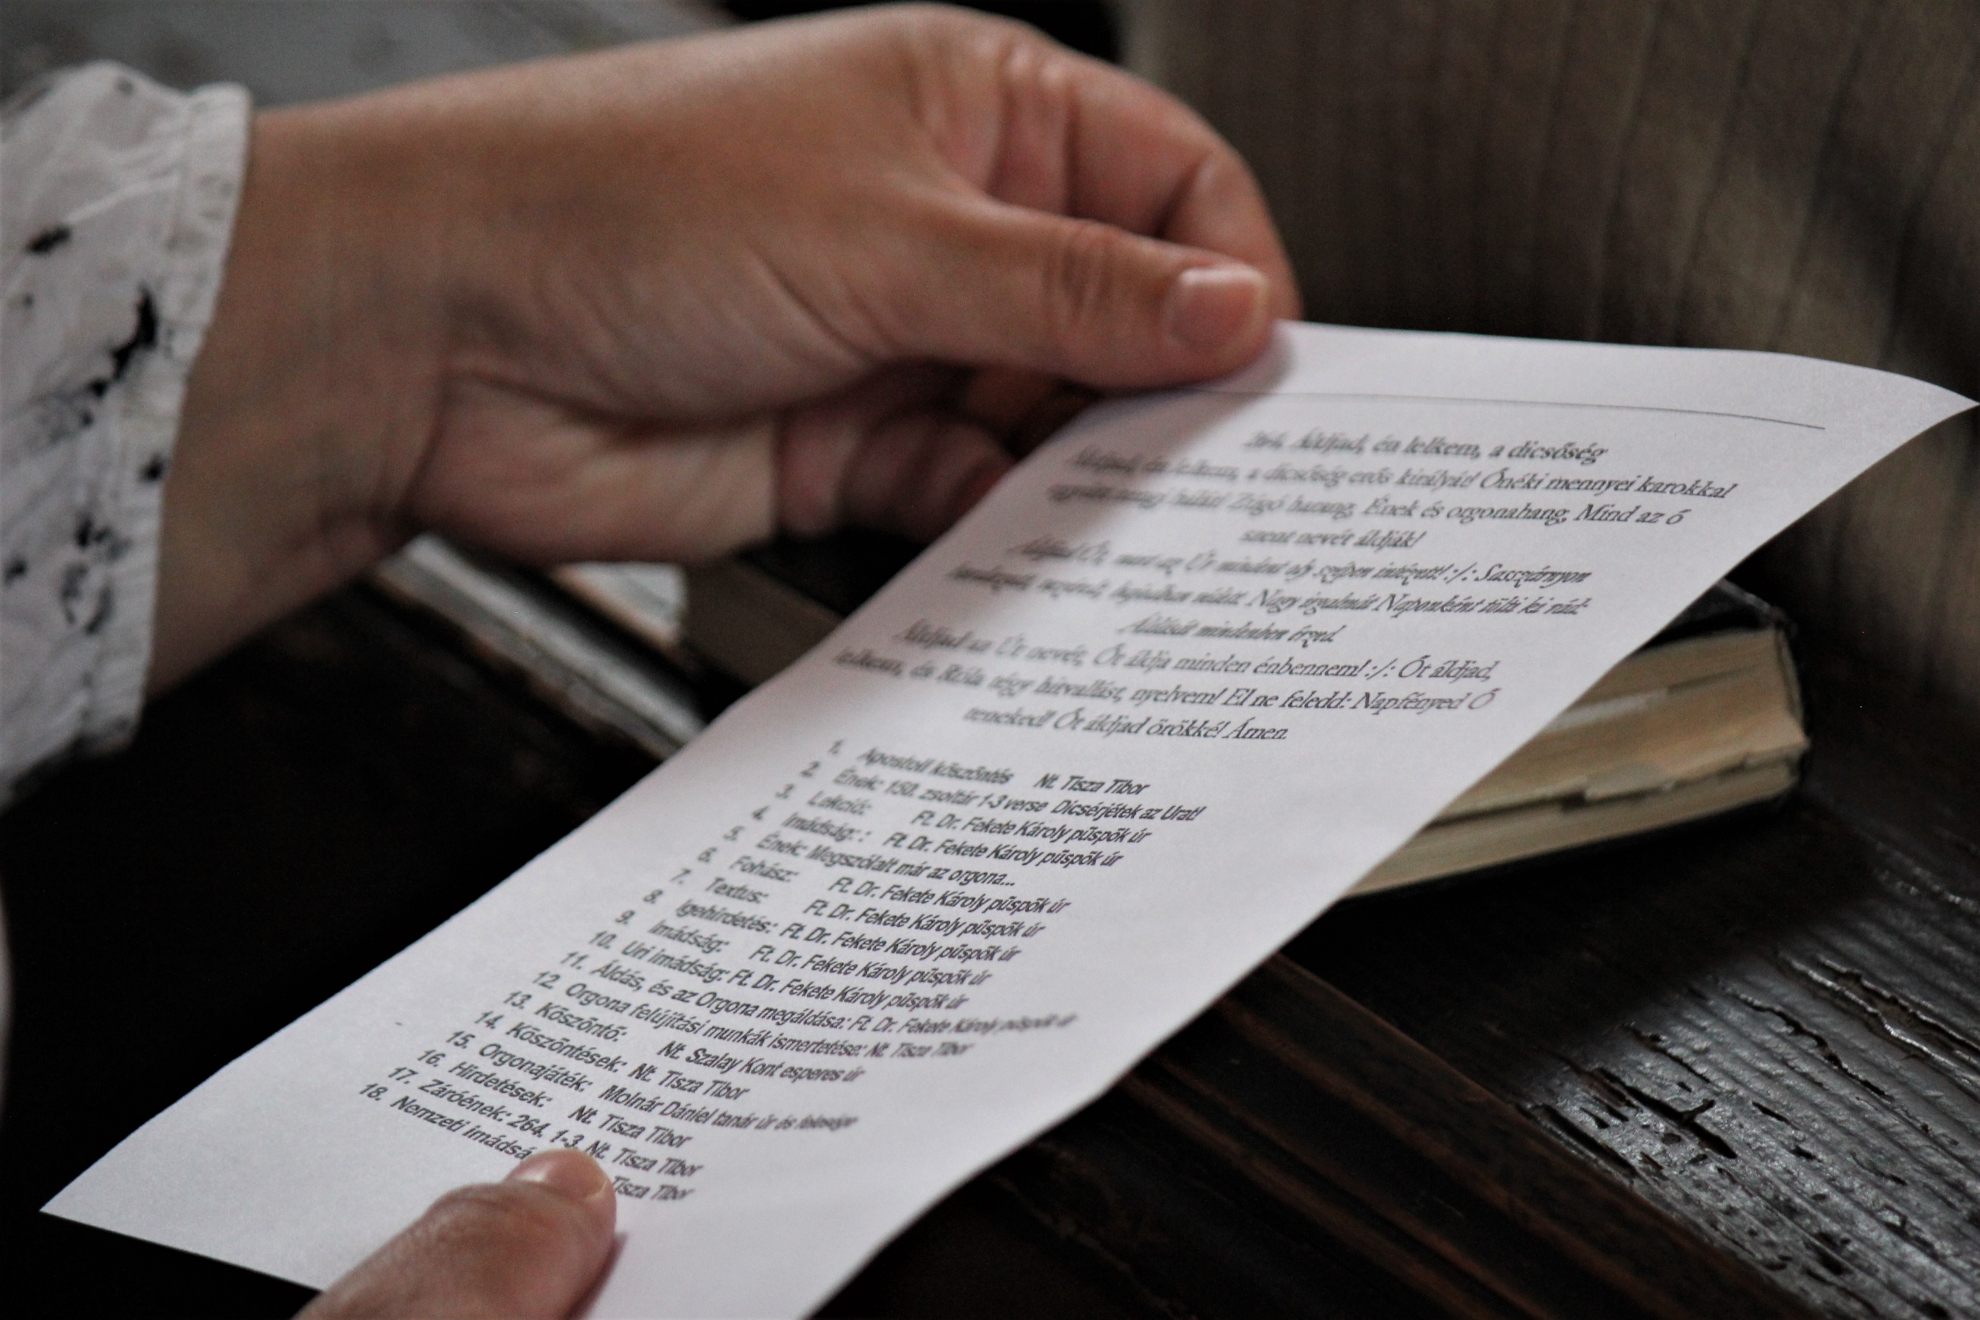 264. Áldjad, én lelkem, a dicsőség
Áldjad, én lelkem, a dicsőség erős királyát! Őnéki mennyei karokkal
együtt zengj hálát! Zúgó harang, Ének és orgonahang, Mind az ő
szent nevét áldják!
Áldjad Őt, mert az Úr mindent oly szépen intézett! :/: Sasszárnyon
hordozott, vezérelt, bajodban védett. Nagy irgalmát Naponként tölti ki rád:
Áldását mindenben érzed.
Áldjad az Úr nevét, Őt áldja minden énbennem! :/: Őt áldjad,
lelkem, és Róla tégy hitvallást, nyelvem! El ne feledd: Napfényed Ő
teneked! Őt áldjad örökké! Ámen.
1. Apostoli köszöntés Nt. Tisza Tibor
2. Ének: 150. zsoltár 1-3 verse Dicsérjétek az Urat!
3. Lekció: Ft. Dr. Fekete Károly püspök úr
4. Imádság: : Ft. Dr. Fekete Károly püspök úr
5. Ének: Megszólalt már az orgona...
6. Fohász: Ft. Dr. Fekete Károly püspök úr
7. Textus: Ft. Dr. Fekete Károly püspök úr
8. Igehirdetés: Ft. Dr. Fekete Károly püspök úr
9. Imádság: Ft. Dr. Fekete Károly püspök úr
10. Úri imádság: Ft. Dr. Fekete Károly püspök úr
11. Áldás, és az Orgona megáldása: Ft. Dr. Fekete Károly püspök úr
12. Orgona felújítási munkák ismertetése: Nt. Tisza Tibor
13. Köszöntő: Nt. Szalay Kont esperes úr
14. Köszöntések: Nt. Tisza Tibor
15. Orgonajáték: Molnár Dániel tanár úr és felesége
16. Hirdetések: Nt. Tisza Tibor
17. Záróének: 264. 1-3. Nt. Tisza Tibor
18. Nemzeti imádsá Tisza Tibor